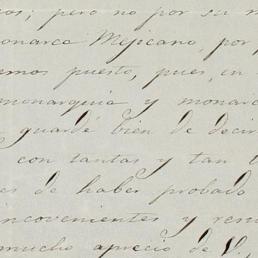 os; pero no por su m
onarca Mejicano, por p
amos puesto, pues, en
monarquia y monarc
guardé bien de decir
con tantas y tan
es de haber probado
incovenientes y resu
mucho aprecio de V.,